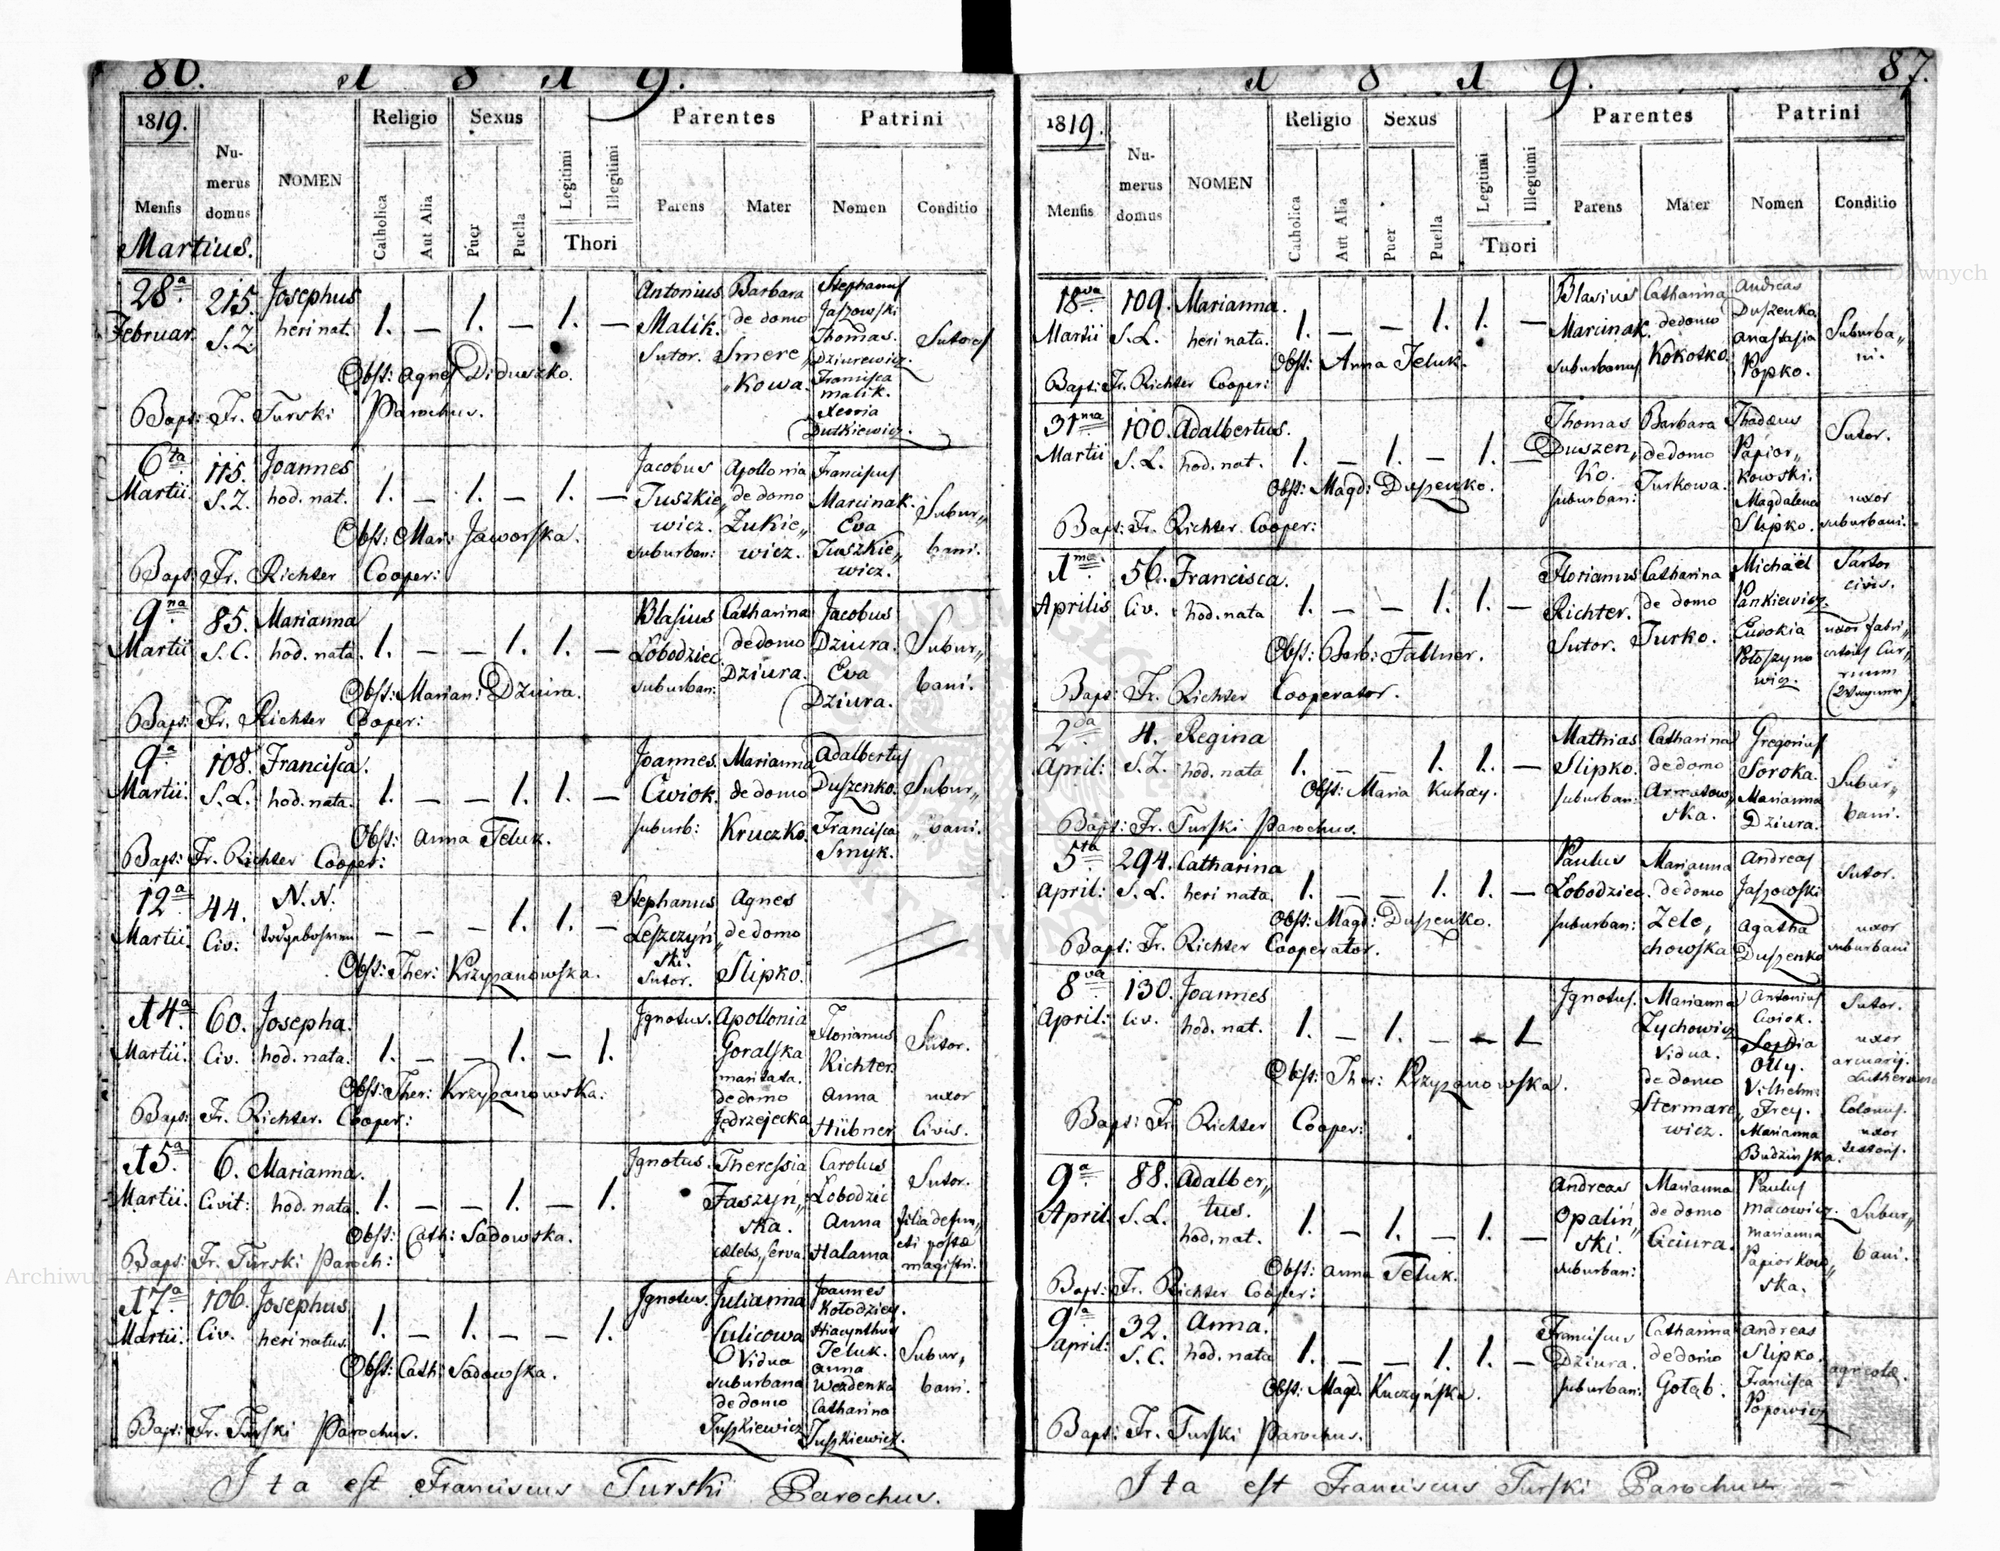 86. 1 8 1 9.
1819. Numerus domus NOMEN Religio Sexus Legitimi Illegitimi Parentes Patrini
Mensis Catholica Aut Alia Puer Puella Thori Parens Mater Nomen Conditio
Martius.
28a Februar. 215. S. Z. Josephus heri nat. 1. — 1. — 1. —
Antonius Malik. Sutor.
Barbara de domo Smere„ „kowa.
Stephanus Jaszowski Thomas Dziurewicz. Francisca Malik. Dutkiewicz.
Sutores
Obst: Agnes Diduszko.
Bapt: Fr. Turski Parochus.
6ta Martii 115. S. Z. Joannes hod. nat. 1. — 1. — 1. —
Jacobus Tuszkie„ wicz. suburban:
Apollonia de domo Zukie„ wicz.
Franciscus Marcinak. Eva Tuszkie„ wicz.
Subur„ bani.
Obst: Mar: Jaworska.
Bapt: Fr. Richter Cooper:
9na Martii 85. S. C. Marianna hod. nata. 1. — — 1. 1. —
Blasius Łobodziec. suburban:
Catharina de domo Dziura.
Jacobus Dziura. Eva Dziura.
Subur„ bani.
Obst: Marian: Dziura.
Bapt: Fr. Richter Cooper:
9a Martii. 108. S. L. Francisca. hod. nata. 1. — — 1. 1. —
Joannes Cwiok. suburb:
Marianna de domo Kruczko.
Adalbertus Duszenko. Francisca Smyk.
Subur„ „bani.
Obst: Anna Teluk.
Bapt: Fr. Richter Cooper:
12a Martii. 44. Civ: N. N. — — — 1. 1. —
Stephanus Leszczyń„ ski. Sutor.
Agnes de domo Slipko.
Obst: Ther: Krzyzanowska.
14a Martii. 60. Civ. Josepha. hod. nata. 1. — — 1. — 1.
Ignotus.
Apollonia Goralska maritata. de domo Jędrzejecka
Florianus Richter. Anna Hübner
Sutor. uxor Civis.
Obst: Ther: Krzyzanowska.
Bapt: Fr. Richter. Cooper:
15a Martii. 6. Civit: Marianna. hod. nata. 1. — — 1. — 1.
Ignotus.
Theressia Faszyń„ ska. cælebs, serva.
Carolus Łobodzic Anna Halama
Sutor. filia defun„ cti postæ magistri.
Obst: Cath: Sadowska.
Bapt: Fr. Turski Paroch:
17a Martii. 106. Civ. Josephus heri natus. 1. — 1. — — 1.
Ignotus.
Julianna Culicowa Vidua suburbana de domo Tuszkiewicz
Joannes Kołodziey. Hiacynthus Teluk. Anna Wezdenka Catharina Tuszkiewicz.
Subur„ bani.
Obst: Cath: Sadowska.
Bapt: Fr. Turski Parochus.
Ita est Franciscus Turski Parochus.
1 8 1 9. 87.
1819. Numerus domus NOMEN Religio Sexus Legitimi Illegitimi Parentes Patrini
Mensis Catholica Aut Alia Puer Puella Thori Parens Mater Nomen Conditio
18va Martii 109. S. L. Marianna. heri nata. 1. — — 1. 1. —
Blasius Marcinak. suburbanus
Catharina de domo Kokosko.
Andreas Duszenko. Anastasia Popko.
Suburba„ ni.
Obst: Anna Teluk.
Bapt: Fr. Richter Cooper:
31ma Martii 100. S. L. Adalbertus. hod. nat. 1. — 1. — 1. —
Thomas Duszen„ ko. suburban:
Barbara de domo Turkowa.
Thadæus Papior„ kowski. Magdalena Slipko.
Sutor. uxor suburbani.
Obst: Magd: Duszenko.
Bapt: Fr. Richter. Cooper:
1ma Aprilis 56. Civ. Francisca. hod. nata 1. — — 1. 1. —
Florianus Richter. Sutor.
Catharina de domo Turko.
Michaël Pankiewicz. Eudokia Potoszyno wicz.
Sartor civis. uxor fabri„ catoris Cur„ ruum
Obst: Barb: Fallner.
Bapt: Fr. Richter Cooperator.
2da April: 4. S. Z. Regina hod. nata 1. — — 1. 1. —
Mathias Slipko. suburban:
Catharina de domo Armatow„ ska.
Gregorius Soroka. Marianna Dziura.
Subur„ bani.
Obst: Maria Kuhay.
Bapt: Fr. Turski Parochus.
5ta April: 294. S. L. Catharina heri nata 1. — — 1. 1. —
Paulus Łobodziec. suburban:
Marianna de domo Zele„ chowska
Andreas Jaszowski Agatha Duszenko
Sutor. uxor suburbani
Obst: Magd: Duszenko.
Bapt: Fr. Richter Cooperator.
8va April: 130. Civ. Joannes hod. nat. 1. — 1. — — 1
Ignotus.
Marianna Zychowicz Vidua. de domo Stermare„ wicz.
Antonius Cwiok. Sophia Otty. Vilhelm: Frey. Marianna Budzinska.
Sutor. uxor arcuarij. Lutherana Colonus. uxor textoris.
Obst: Ther: Krzyzanowska.
Bapt: Fr. Richter Cooper:
9a April. 88. S. L. Adalber„ tus. hod. nat. 1. — 1. — 1. —
Andreas Opaliń„ ski. suburban:
Marianna de domo Ciciura.
Paulus Macowicz. Marianna Papiorkow„ ska.
Subur„ bani.
Obst: Anna Teluk.
Bapt: Fr. Richter Cooper:
9ta April: 32. S. C. Anna. hod. nata 1. — — 1. 1. —
Franciscus Dziura. suburban:
Catharina de domo Gołąb.
Andreas Slipko. Francisca Popowicz
agricolæ.
Obst: Magd. Kuczyńska.
Bapt: Fr. Turski Parochus.
Ita est Franciscus Turski Parochus
Archiwum Główne Akt Dawnych
Archiwum Główne Akt Dawnych